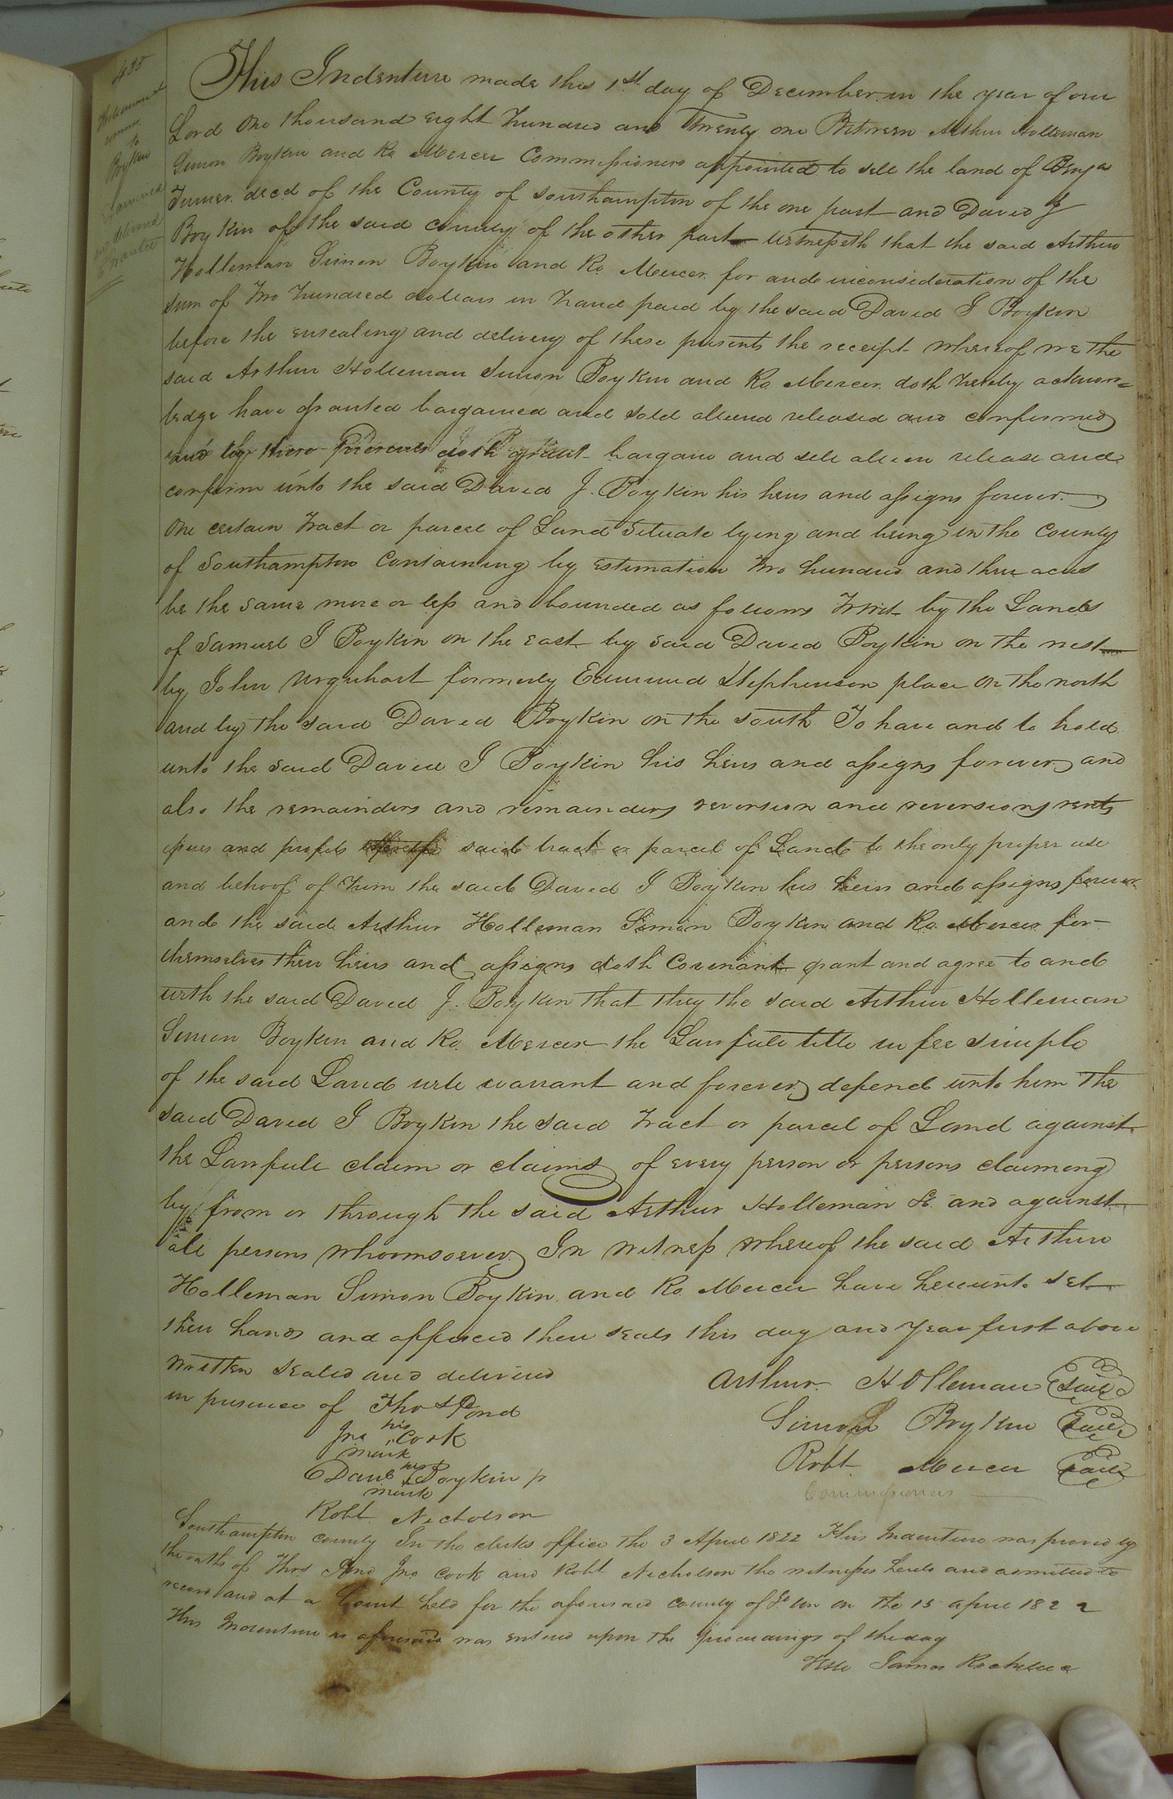 435
Holleman &
comrs
to
Boykin
Examined
and delivered
to Grantee
This Indenture made this 1st day of December in the year of our
Lord One thousand eight hundred and Twenty one Between Arthur Holleman
Simon Boykin and Ro Mercer Commissioners appointed to sell the land of Benja
Turner decd of the County of Southampton of the one part and David J
Boykin of the said county of the other part witnesseth that the said Arthur
Holleman Simon Boykin and Ro Mercer for and inconsideration of the
sum of Two hundred dollars in hand paid by the said David J Boykin
before the ensealing and delivery of these presents the receipt whereof we the
said Arthur Holleman Simon Boykin and Ro Mercer doth hereby acknow=
ledge have granted bargained and sold aliend released and confirmed
and by these Presents doth grant bargain and sell alien release and
confirm unto the said David J. Boykin his heirs and assigns forever
One certain Tract or parcel of Land Situate lying and being in the County
of Southampton Containing by estimation Two hundred and three acres
be the same more or less and bounded as follows Towit by the Lands
of Samuel J Boykin on the east by said David Boykin on the west
by John Urquhart formerly Edmund Stephenson place on the north
and by the said David Boykin on the south To have and to hold
unto the said David J Boykin his heirs and assigns forever and
also the remainders and remainders reversion and reversions rents
issues and profits said tract or parcel of Land to the only proper use
and behoof of him the said David J Boykin his heirs and assigns forever
and the said Arthur Holleman Simon Boykin and Ro Mercer for
themselves their heirs and assigns doth Covenant grant and agree to and
with the said David J. Boykin that they the said Arthur Holleman
Simon Boykin and Ro. Mercer the Lawfull title in fee simple
of the said Land will warrant and forever defend unto him the
said David J Boykin the said Tract or parcel of Land against
the Lawfull claim or claims of every person or persons claiming
by from or through the said Arthur Holleman &c and against
all persons whoomsoever In witness whereof the said Arthur
Holleman Simon Boykin and Ro Mercer have hereunto set
their hands and affixed their seals this day and year first above
written Sealed and delivered
in presence of Tho S Pond
his
Jno Cook
mark
his
Danl + Boykin
mark
Robt Nicholson
Arthur Holleman Seal
Simon Boykin Seal
Robt Mercer Seal
Commissioners
Southampton county In the clerks office the 3 April 1822 This Indenture was proved by
the oath of Thos Pond Jno Cook and Robt Nicholson the witnesses hereto and admitted to
record and at a Court held for the aforesaid county of So ton on the 15 april 1822
This Indenture as aforesaid was entered upon the proceedings of the day
Teste James Rochelle